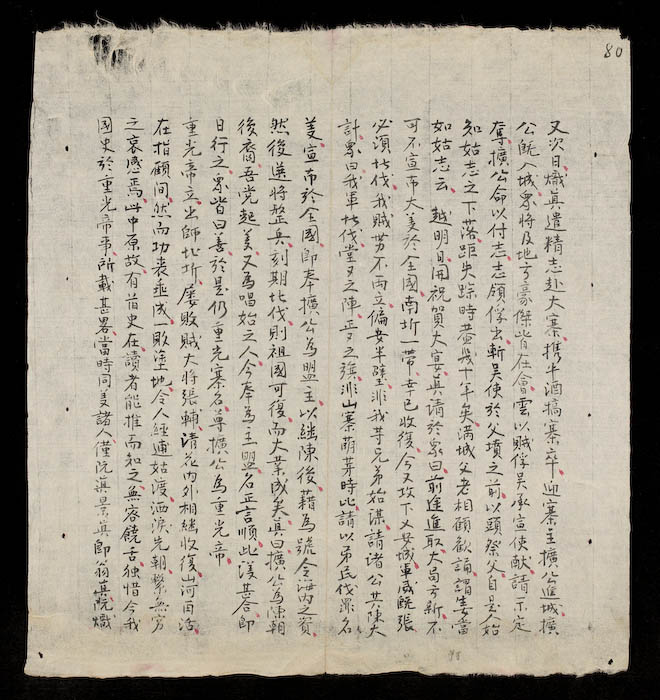 80
又次日熾眞遣精志赴大寨携牛酒犒寨卒迎寨主擴公進城擴
公旣入城眾將及地方豪傑皆在會雲以賊俘吳承宣使獻請示定
奪擴公命以付志志領俘出斬吳使於父墳之前以頭祭父自是人始
知姑志之下落距失踪時葢幾十年矣滿城父老相顧歡誦謂養當
如姑志云 越明日開祝賀大宴眞請於眾曰前途進取大局方新不
可不宣布大義於全國南圻一帶幸已收復今又攻下乂安城軍威旣張
必須北伐我賊勢不兩立偏安半壁非我等兄弟始謀請諸公共陳大
計眾曰我軍北伐堂又之陣正又之旗非山寨萠芽時比請以弔民伐罪名
義宣布於全國即奉擴公爲盟主以繼陳後藉爲號令海內之資
然後選將整兵刻期北伐則祖國可復而大業成矣眞曰擴公爲陳朝
後裔吾党起義又爲唱始之人今奉爲主盟名正言順此議甚合即
日行之眾皆曰善於是仍重光寨名尊擴公爲重光帝
重光帝立出師北圻屢敗賊大將張輔清花內外相繼收復山河再活
在指顧間然而功衰垂成一敗塗地令人經逋姑渡洒淚先朝繫無窮
之哀感焉此中原故有前史在讀者能推而知之無容饒舌独惜今我
國史於重光帝事所載甚畧當時同義諸人僅阮蘃景眞即翁眞阮熾
98